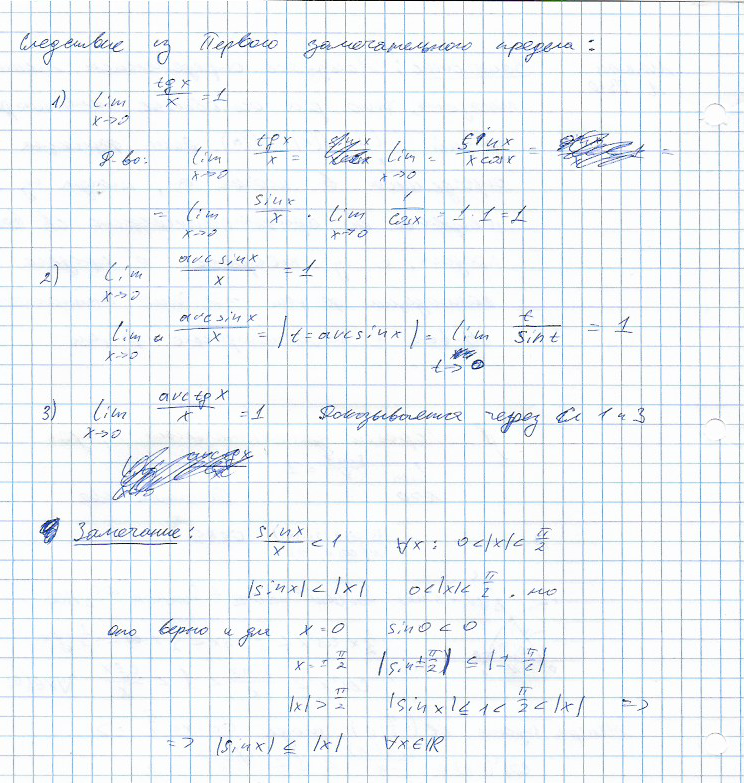 Следствие из Первого замечательного предела:
1) lim x→0 tg x / x = 1
Д-во: lim x→0 tg x / x = lim x→0 = sin x / x cos x = =
= lim x→0 sin x / x · lim x→0 1 / cos x = 1 · 1 = 1
2) lim x→0 arcsin x / x = 1
lim x→0 arcsin x / x = | t = arcsin x | = lim t→0 t / sin t = 1
3) lim x→0 arctg x / x = 1 Доказывается через Сл 1 и 3
Замечание: sin x / x < 1 ∀x: 0 < |x| < π/2
|sin x| < |x| 0 < |x| < π/2, но
оно верно и для x = 0 sin 0 < 0
x = ± π/2 |sin ± π/2| ≤ |± π/2|
|x| > π/2 |sin x| ≤ 1 < π/2 < |x| =>
=> |sin x| ≤ |x| ∀x∈ℝ